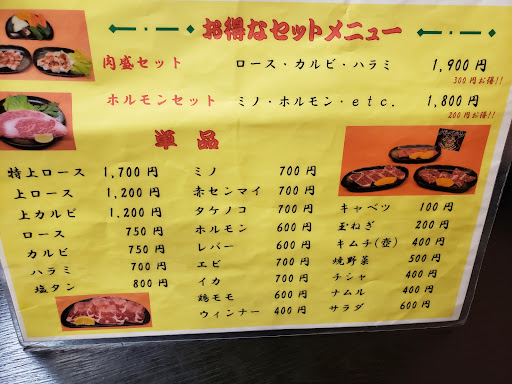 お得なセットメニュー
肉盛セット ロース・カルビ・ハラミ 1,900円
300円お得!!
ホルモンセット ミノ・ホルモン・etc. 1,800円
200円お得!!
単品
特上ロース 1,700円
上ロース 1,200円
上カルビ 1,200円
ロース 750円
カルビ 750円
ハラミ 700円
塩タン 800円
ミノ 700円
赤センマイ 700円
タケノコ 700円
ホルモン 600円
レバー 600円
エビ 700円
イカ 700円
鶏モモ 600円
ウィンナー 400円
キャベツ 100円
玉ねぎ 200円
キムチ(壺) 400円
焼野菜 500円
チシャ 400円
ナムル 400円
サラダ 600円